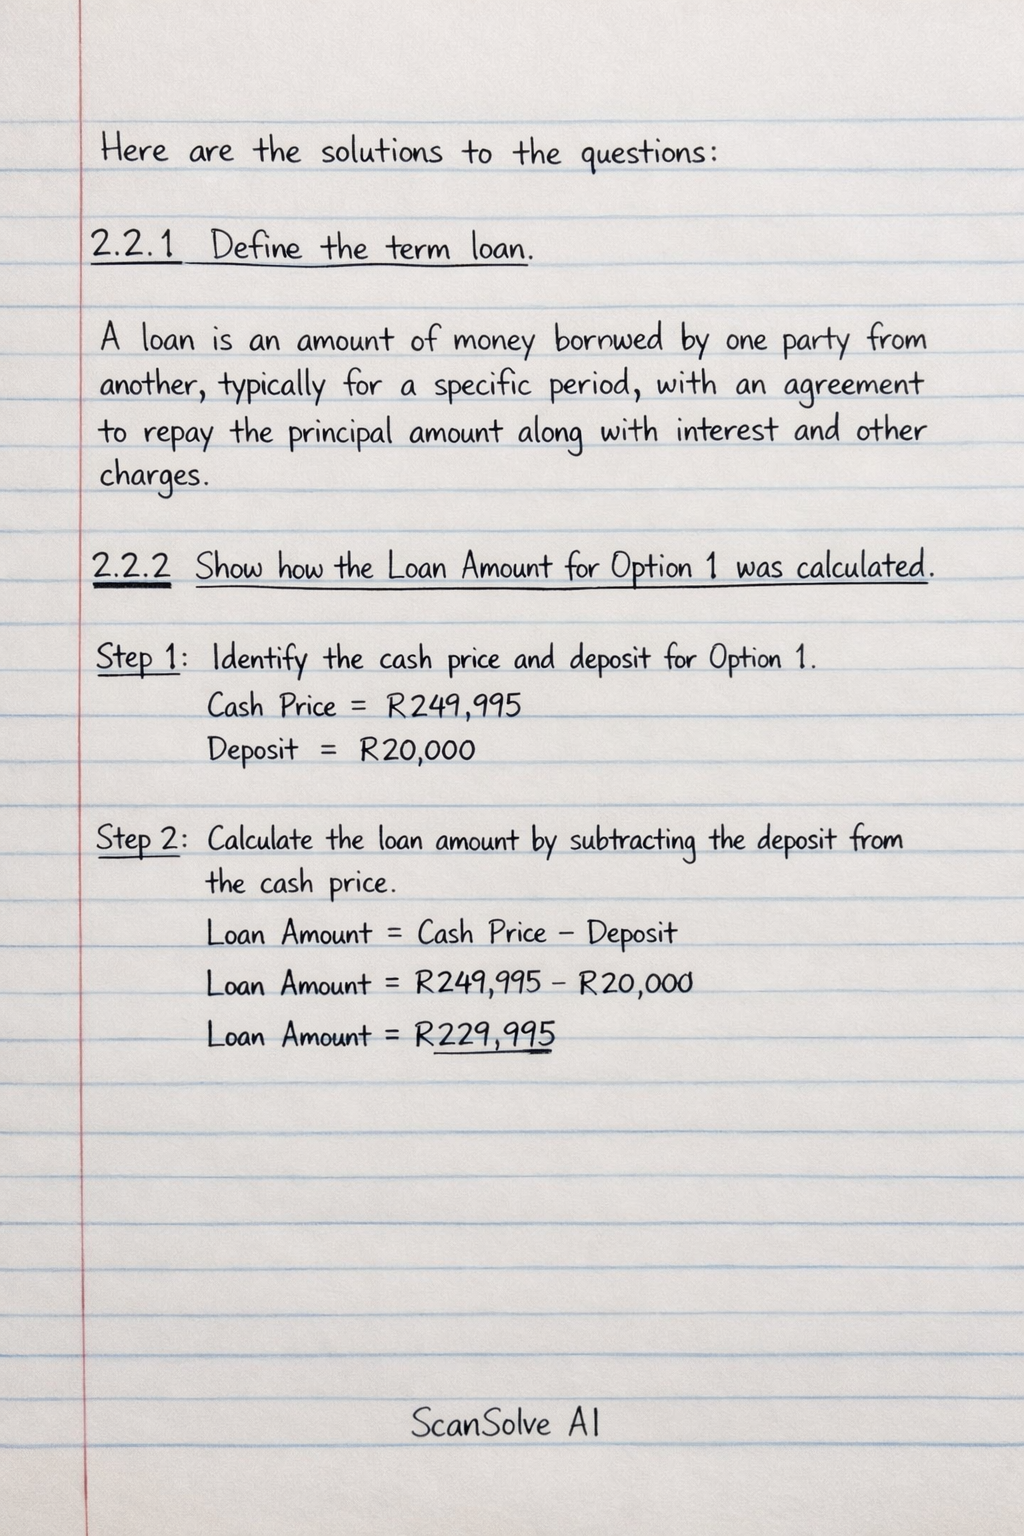 Here are the solutions to the questions:
2.2.1 Define the term loan.
A loan is an amount of money bornwed by one party from
another, typically for a specific period, with an agreement
to repay the principal amount along with interest and other
charges.
2.2.2 Show how the Loan Amount for Option 1 was calculated.
Step 1: Identify the cash price and deposit for Option 1.
Cash Price = R249,995
Deposit = R20,000
Step 2: Calculate the loan amount by subtracting the deposit from
the cash price.
Loan Amount = Cash Price – Deposit
Loan Amount = R249,995 – R20,000
Loan Amount = R229,995
ScanSolve AI